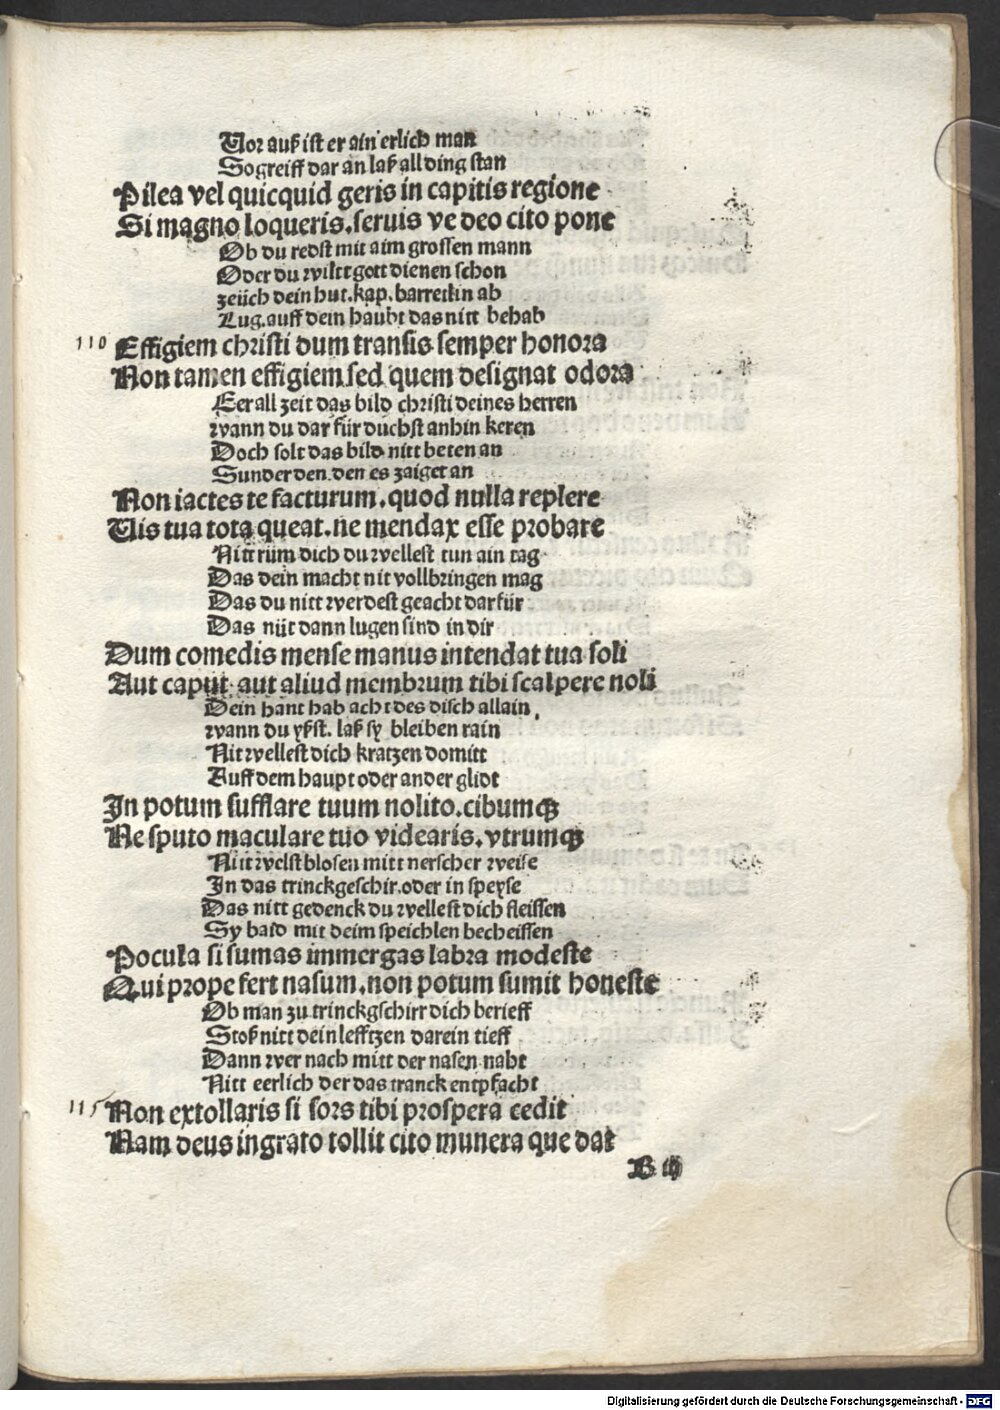 Uor auß ist er ain erlich man
So greiff dar an laß all ding stan
Pilea vel quicquid geris in capitis regione
Si magno loqueris. seruis ve deo cito pone
Ob du redst mit aim grossen mann
Oder du wilt gott dienen schon
zeüch dein hut. kap. barretlin ab
Lug. auff dein haubt das nitt behab
110 Effigiem christi dum transis semper honora
Non tamen effigiem sed quem designat odora
Eer all zeit das bild christi deines herren
wann du dar für důchst anhin keren
Doch solt das bild nitt beten an
Sunder den. den es zaiget an
Non iactes te facturum. quod nulla replere
Uis tua tota queat. ne mendax esse probare
Nitt rüm dich du wellest tun ain tag
Das dein macht nit vollbringen mag
Das du nitt werdest geacht darfür
Das nüt dann lugen sind in dir
Dum comedis mense manus intendat tua soli
Aut caput aut aliud membrum tibi scalpere noli
Dein hant hab acht des disch allain
wann du yßst. laß sy bleiben rain
Nit wellest dich kratzen domitt
Auff dem haupt oder ander glidt
In potum sufflare tuum nolito. cibumqꝫ
Ne sputo maculare tuo videaris. vtrumqꝫ
Nitt welst blosen mitt nerscher weise
In das trinckgeschir. oder in speyse
Das nitt gedenck du wellest dich fleissen
Sy bald mit deim speichlen becheissen
Pocula si sumas immergas labra modeste
Qui prope fert nasum. non potum sumit honeste
Ob man zu trinckgschirr dich berieff
Stoß nitt dein lefftzen darein tieff
Dann wer nach mitt der nasen naht
Nitt eerlich der das tranck entpfacht
115 Non extollaris si sors tibi prospera cedit
Nam deus ingrato tollit cito munera que dat
B iij
Digitalisierung gefördert durch die Deutsche Forschungsgemeinschaft - DFG